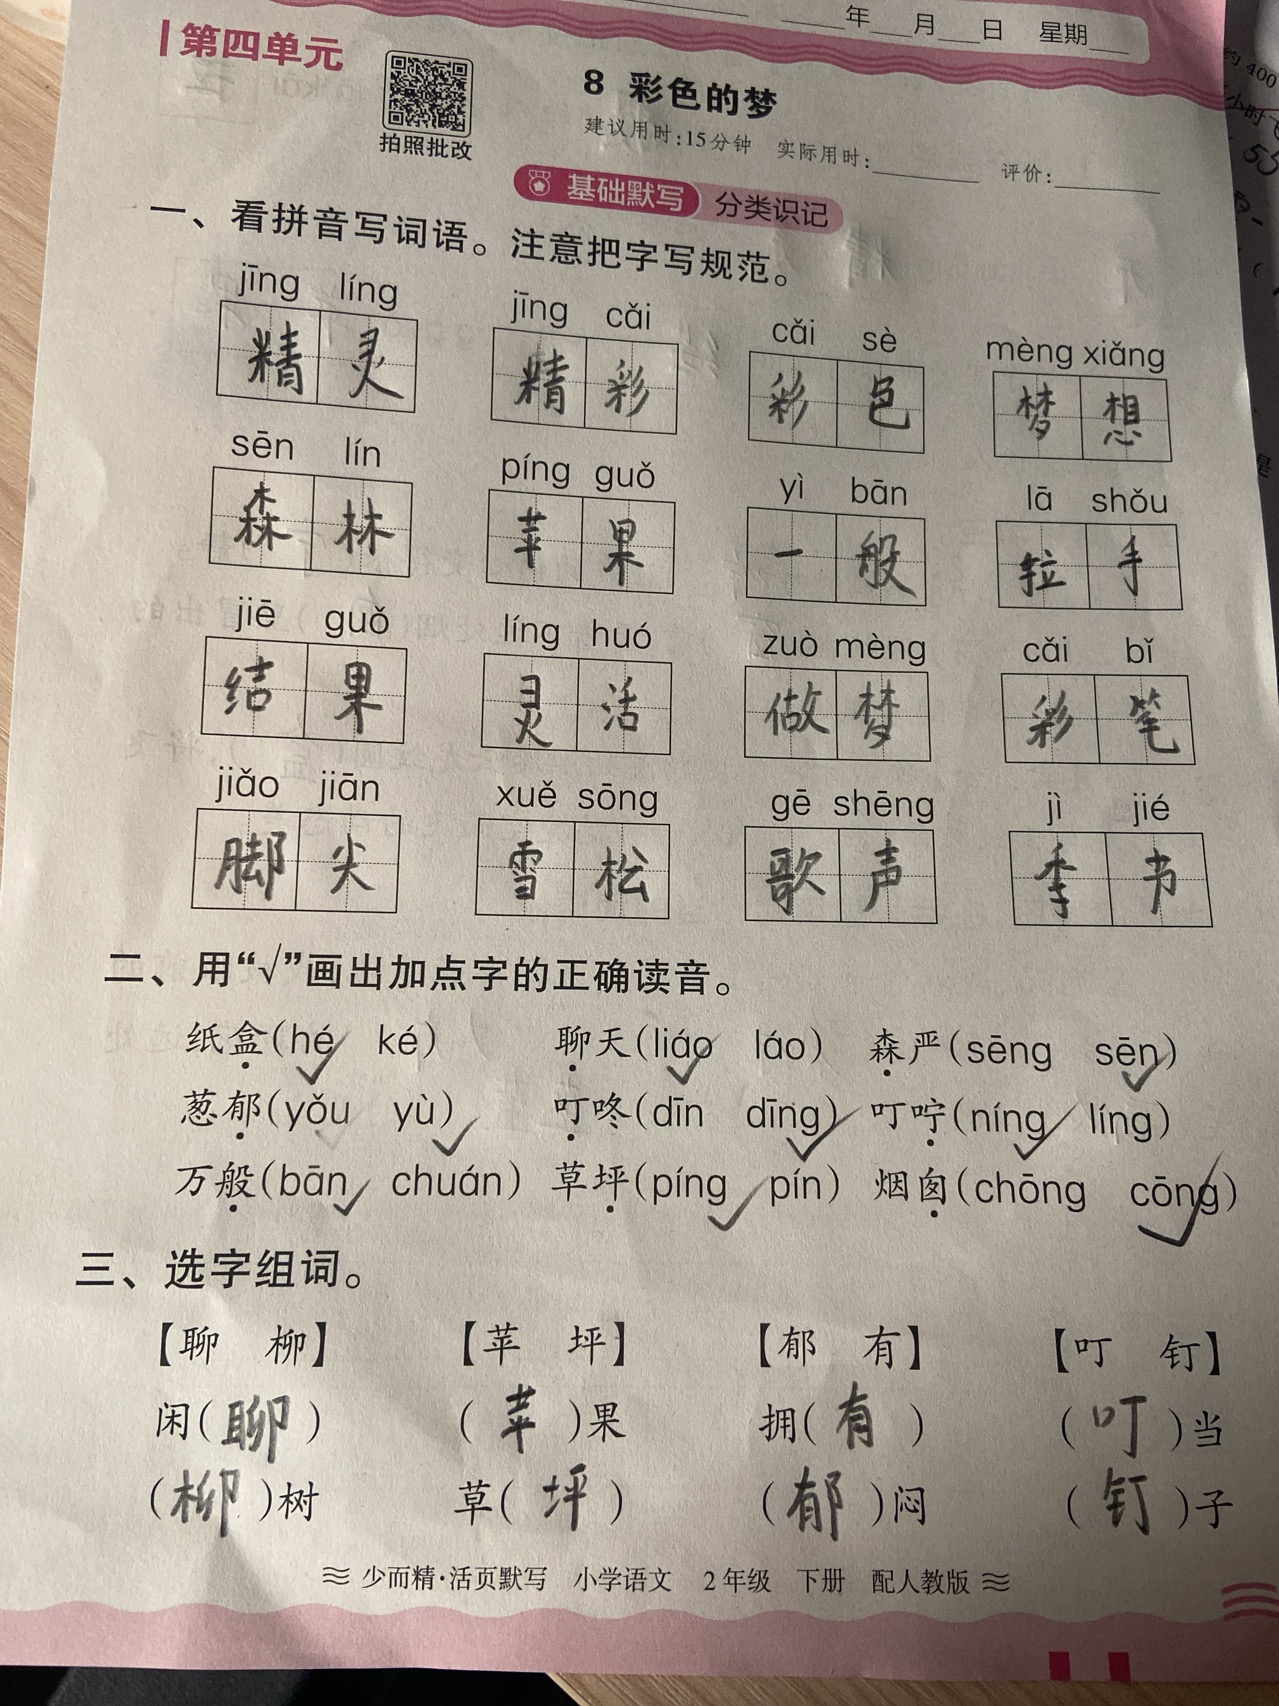 年 月 日 星期
第四单元
拍照批改
8 彩色的梦
建议用时:15分钟 实际用时: 评价:
基础默写 分类识记
一、看拼音写词语。注意把字写规范。
jīng líng jīng cǎi cǎi sè mèng xiǎng
精灵 精彩 彩色 梦想
sēn lín píng guǒ yì bān lā shǒu
森林 苹果 一般 拉手
jiē guǒ líng huó zuò mèng cǎi bǐ
结果 灵活 做梦 彩笔
jiǎo jiān xuě sōng gē shēng jì jié
脚尖 雪松 歌声 季节
二、用“√”画出加点字的正确读音。
纸盒(hé√ ké) 聊天(liáo√ láo) 森严(sēng sēn√)
葱郁(yǒu yù√) 叮咚(dīn dīng√) 叮咛(níng√ líng)
万般(bān√ chuán) 草坪(píng√ pín) 烟囱(chōng cōng√)
三、选字组词。
【聊 柳】 【苹 坪】 【郁 有】 【叮 钉】
闲(聊) (苹)果 拥(有) (叮)当
(柳)树 草(坪) (郁)闷 (钉)子
少而精·活页默写 小学语文 2年级 下册 配人教版